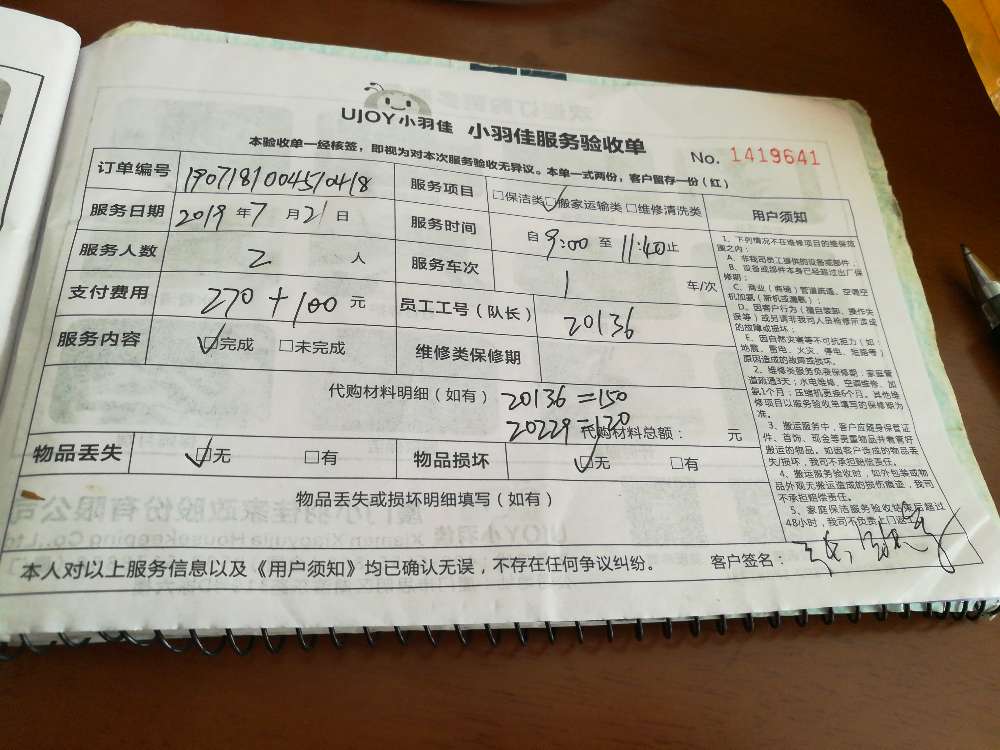 UJOY小羽佳 小羽佳服务验收单
No. 1419641
本验收单一经核签，即视为对本次服务验收无异议。本单一式两份，客户留存一份（红）
订单编号 190718100451048 服务项目 □保洁类 ☑搬家运输类 □维修清洗类
服务日期 2019 年 7 月 21 日 服务时间 自 9:00 至 11:40 止
服务人数 2 人 服务车次 1 车/次
支付费用 270+100 元 员工工号（队长） 20136
服务内容 ☑完成 □未完成 维修类保修期
代购材料明细（如有） 20136=150
20229=120
代购材料总额： 元
物品丢失 ☑无 □有 物品损坏 ☑无 □有
物品丢失或损坏明细填写（如有）
本人对以上服务信息以及《用户须知》均已确认无误，不存在任何争议纠纷。 客户签名：
用户须知
1、下列情况不在维修项目的维保范
围之内：
A、非我司员工提供的设备或部件；
B、设备或部件本身已经超过出厂保
修期；
C、商业（商铺）管道疏通、空调空
机加氨（新机或漏氨）；
D、因客户行为（擅自装卸、操作失
误等）或另请非我司人员检修所造成
的故障或损坏；
E、因自然灾害等不可抗拒力（如
地震、雷电、火灾、停电、短路等）
原因造成的故障或损坏。
2、维修类服务免费保修期：家庭管
道疏通3天；水电维修、空调维修、加
氨1个月；压缩机更换6个月。其他维
修项目以服务验收单填写的保修期为
准。
3、搬运服务中，客户应随身保管证
件、首饰、现金等贵重物品并看管好
搬运的物品。如因客户造成的物品丢
失/损坏，我司不承担赔偿责任。
4、搬运服务验收时，如外包装或物
品外观无搬运造成的损伤痕迹，我司
不承担赔偿责任。
5、家庭保洁服务验收结束后超过
48小时，我司不负责上门返工。